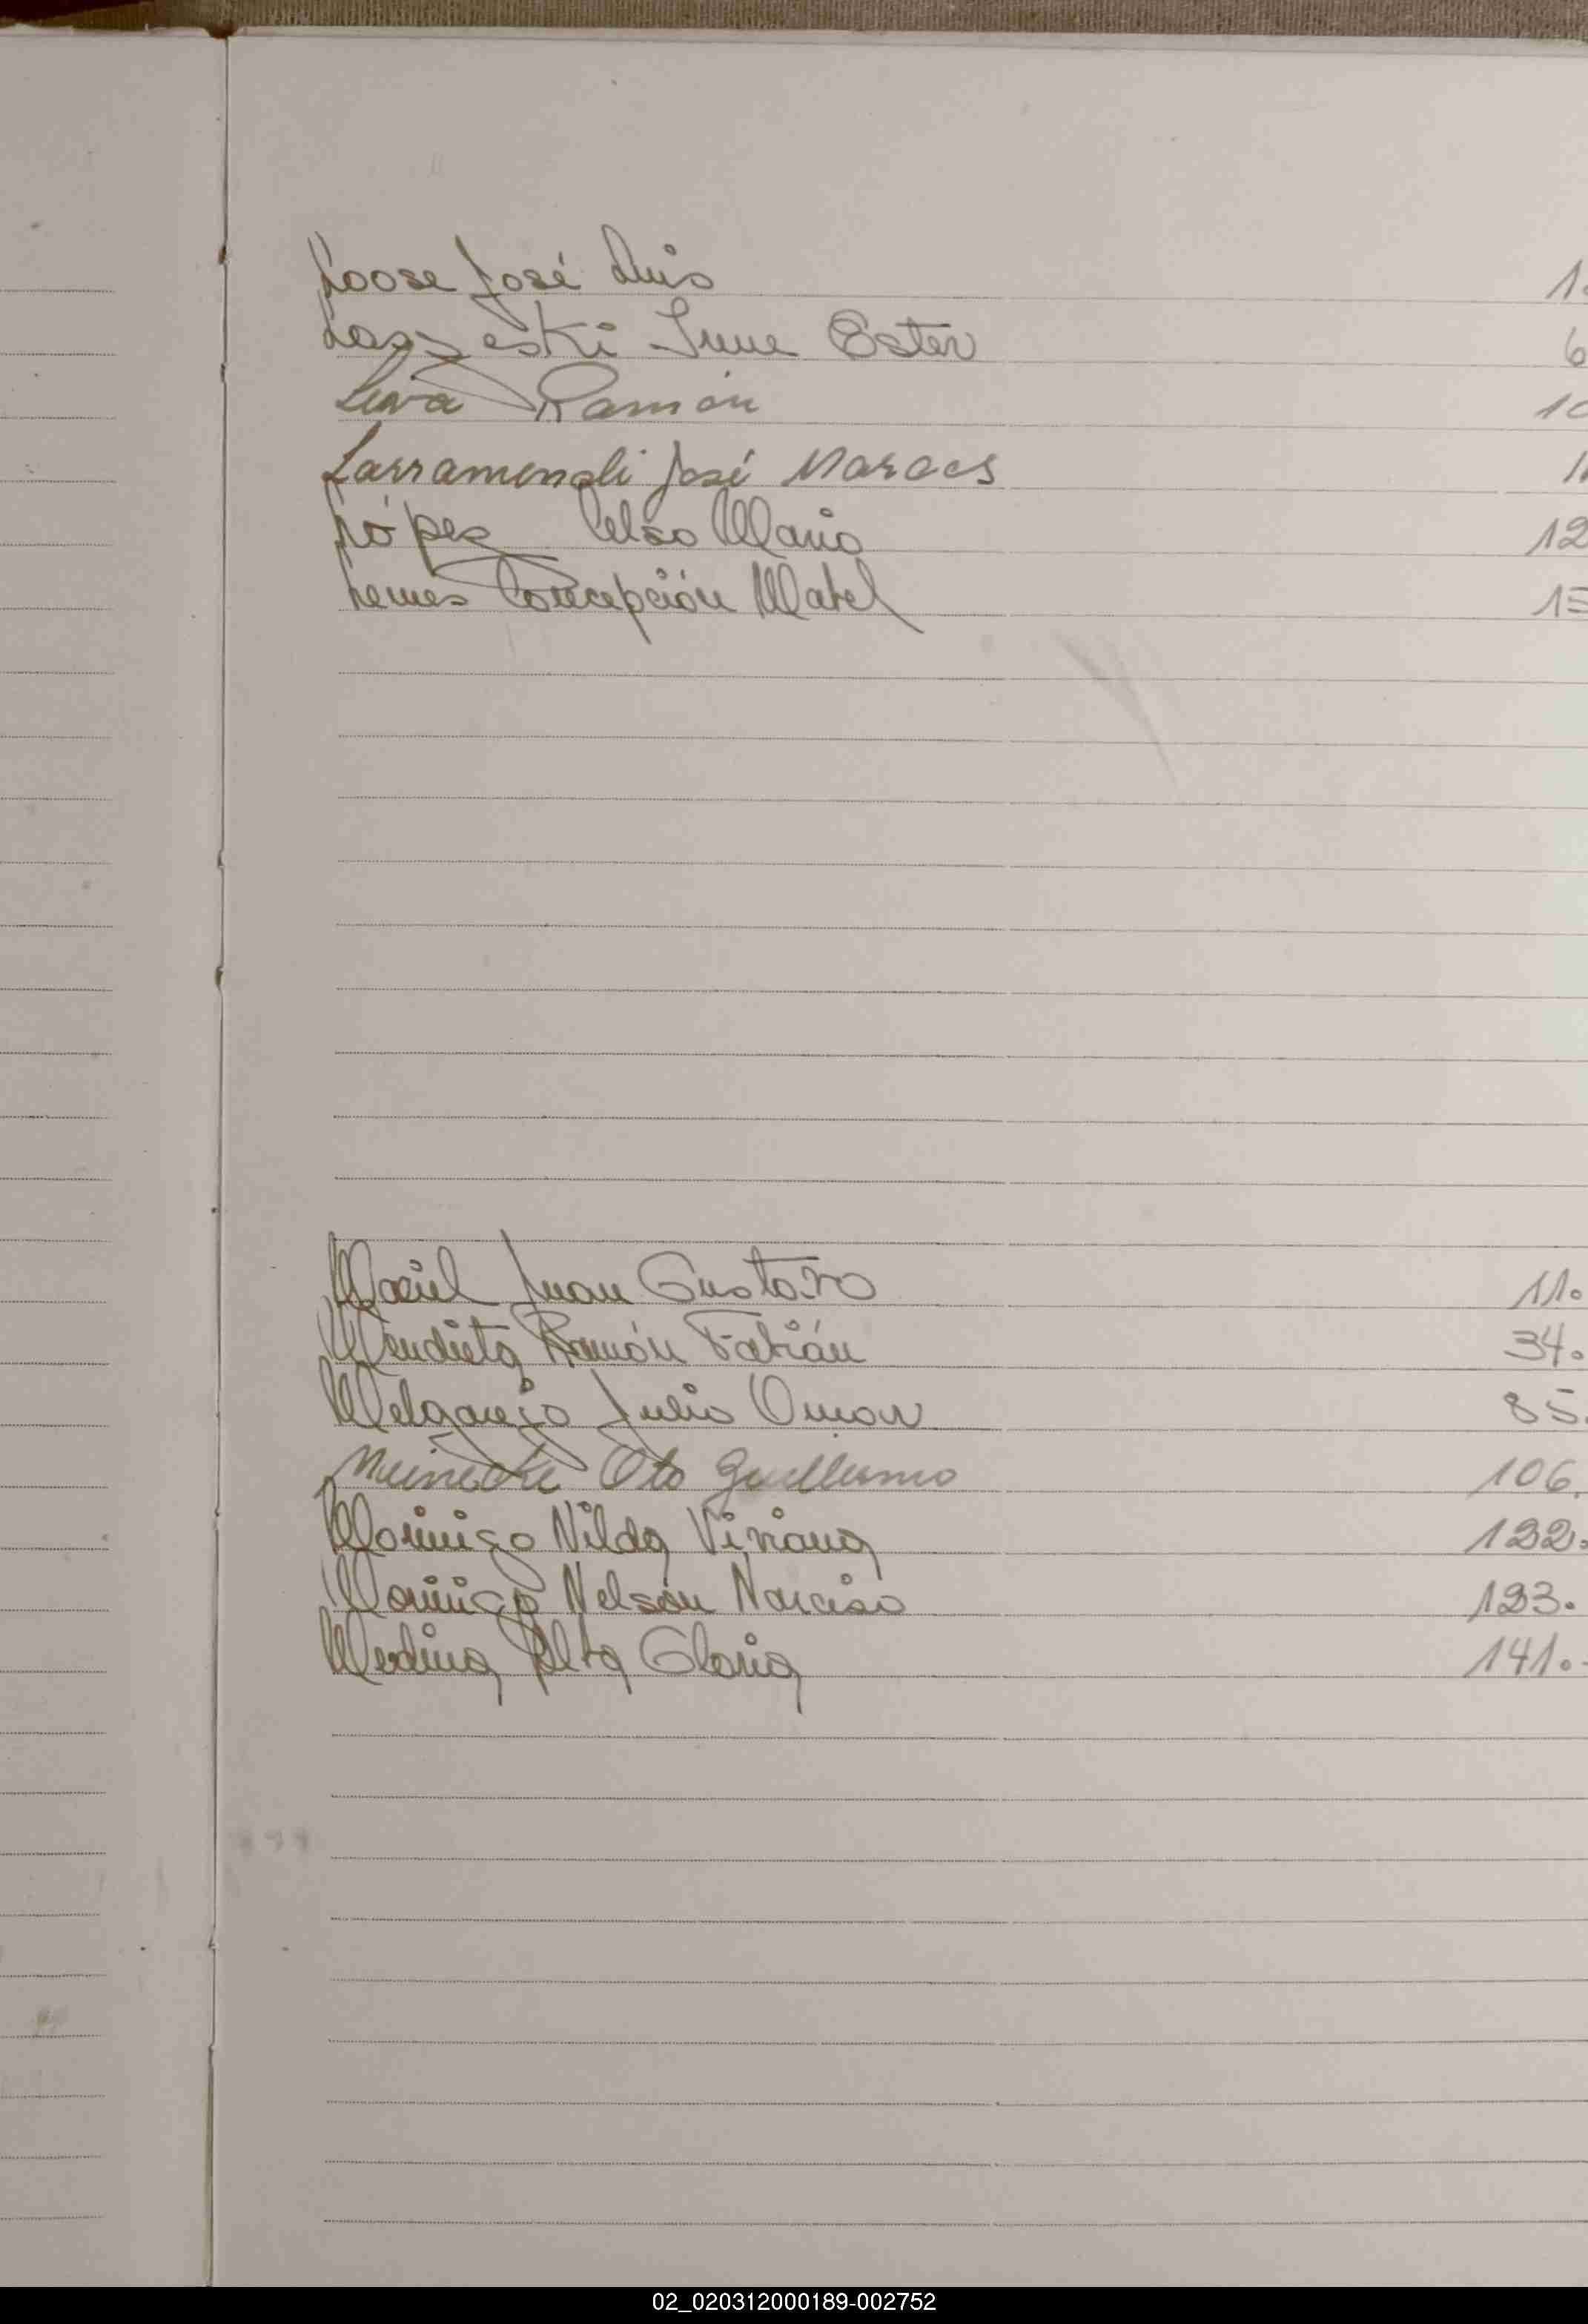 Loose José Luis 1
Laszeski Irene Ester 6
Leiva Ramón 10
Larramendi José Marcos 1
López Celso Mario 12
Lemes Concepción Mabel 15
Maciel Juan Gustavo 11.
Mendieta Ramón Fabián 34.
Melgarejo Julio Omar 85.
Meinecke Oto Guillermo 106.
Morinigo Nilda Viviana 122.
Morinigo Nelson Narciso 123.
Medina Alba Gloria 141.-
02_020312000189-002752